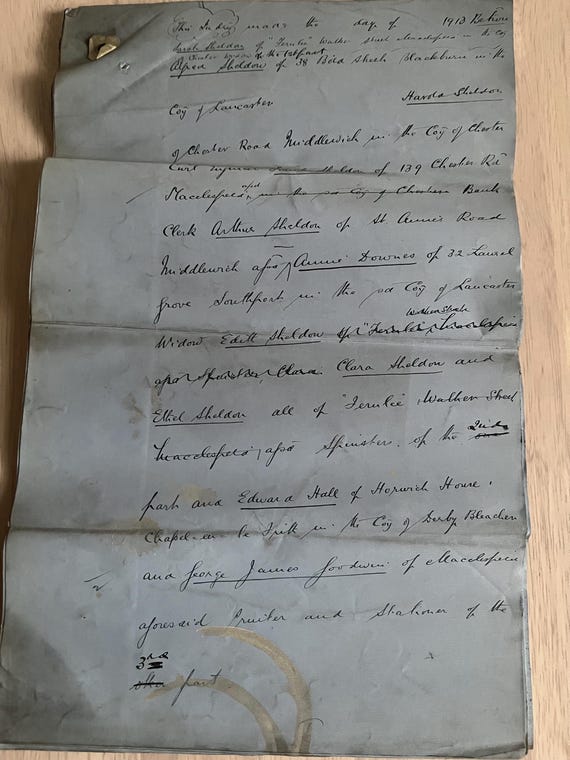 This Indre made the day of 1913 Between
Sarah Sheldon of "Fernlie" Walker Street Macclesfield in the Coy
of Chester Widow of the 1st part
Alfred Sheldon of 38 Bold Street Blackburn in the
Coy of Lancaster Harold Sheldon
of Chester Road Middlewich in the Coy of Chester
Sheldon of 139 Chester Rd
Macclesfield afsd in the sd Coy of Chester Bank
Clerk Arthur Sheldon of St. Annes Road
Middlewich afsd Annie Downes of 32 Laurel
Grove Southport in the sd Coy of Lancaster
Walker Street
Widow Edith Sheldon of "Fernlie" Macclesfield
afsd Spinster Clara Clara Sheldon and
Ethel Sheldon all of "Fernlie" Walker Street
Macclesfield afsd Spinsters of the 2nd
part and Edward Hall of Horwich House
Chapel-en-le-Frith in the Coy of Derby Bleacher
and George James Goodwin of Macclesfield
aforesaid Printer and Stationer of the
3rd
other part.